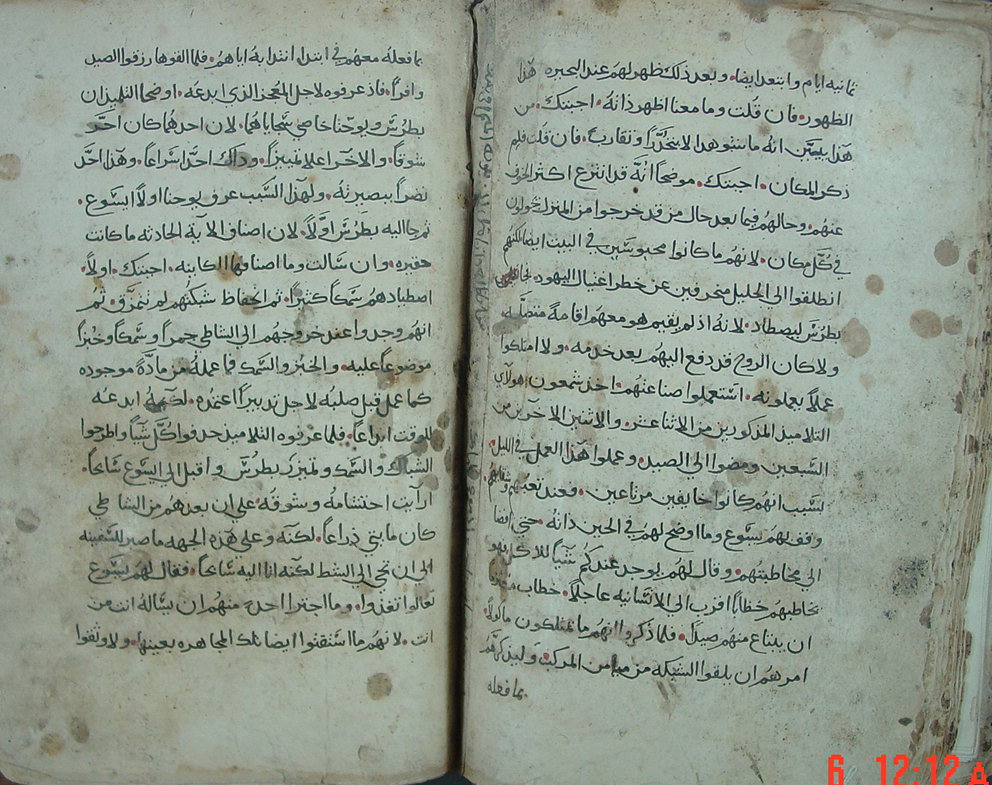 ثمانيه ايام وابتعد ايضا، وبعد ذلك ظهر لهم عند البحيره هذا
الظهور، فان قلت وما معنا اظهر ذاته، اجبتك، من
هذا يتبين انه ما شوهد الا بتحدرًا وتقارب، فان قلت فلم
ذكر المكان، اجبتك، موضحًا انه قد انتزع اكثر الخوف
عنهم، وحالهم فيما بعد حال من قد خرجوا من المنزل يجولون
في كل مكان، لانهم ما كانوا محبوسين في البيت ايضا لكنهم
انطلقوا الى الجليل منحرفين عن خطر اغتيال اليهود،
بطرس ليصطاد، لانه اذ لم يقيم هو معهم اقامةً متصله،
ولا كان الروح قد دفع اليهم بعد خدمه، ولا امتلكوا
عملاً يعملونه، استعملوا صناعتهم، اخذ شمعون هولاي
التلاميذ المذكورين من الاثنا عشر، والاثنين الاخرين من
السبعين ومضوا الى الصيد، وعملوا هذا العمل في الليل،
لسبب انهم كانوا خايفين مرتاعين، فعند تعبهم
وقف بهم يسوع وما اوضح لهم في الحين ذاته، حتي افضا
الي مخاطبتهم، وقال لهم يوجد عندكم شيًا للاكل، فهو
يخاطبهم خطابًا اقرب الى الانسانيه عاجلاً، خطاب
ان يبتاع منهم صيدًا، فلما ذكروا انهم ما يمتلكون ماكولاً،
امرهم ان يلقوا الشبكه من ميامن المركب، وليذكرهم
بما فعله
بما فعله معهم في ابتدا انتدابه اياهم، فلما القوها رزقوا الصيد
وافرًا، فاذ عرفوه لاجل المعجز الذي ابدعه، اوضحا التلميذان
بطرس ويوحنا خاصي سجاياهما، لان احدهما كان احر
شوقًا، والاخر اعلا تمييزًا، وذاك احد اسراعًا، وهذا احد
نضرًا ببصيرته، ولهذا السبب عرف يوحنا اولاً ايسوع،
ثم جا اليه بطرس اولاً، لان اصناف الاية الحادثه ما كانت
حقيره، وان سالت وما اصنافها الكاينه، اجبتك، اولاً،
اصطيادهم سمكًا كثيرًا، ثم انحفاظ شبكتهم لم تنمزق، ثم
انهم وجدوا عند خروجهم الى الشاطي جمرًا وسمكًا وخبزًا
موضوعًا عليه، والخبز والسمك فما عمله من مادةً موجوده
كما عمل قبل صلبه لاجل تدبيرًا اعتمده، لكنه ابدعه
للوقت ابداعًا، فلما عرفوه التلاميذ حدفوا كل شيًا واطرحوا
الشباك والسمك وتميزر بطرس واقبل الى يسوع سابحًا،
ارايت احتشامه وشوقه، علي ان بعدهم من الشاطي
كان مايتي ذراعًا، لكنه وعلي هذه الجهه ما صبر للسفينه
الى ان تجي الى الشط لكنه اتا اليه سابحًا، فقال لهم يسوع
تعالوا تغدوا، وما اجترا احد منهم ان يساله انت من
انت، لانهم ما استقنوا ايضا تلك المجاهره بعينها، ولا وثقوا
6 12:12 A